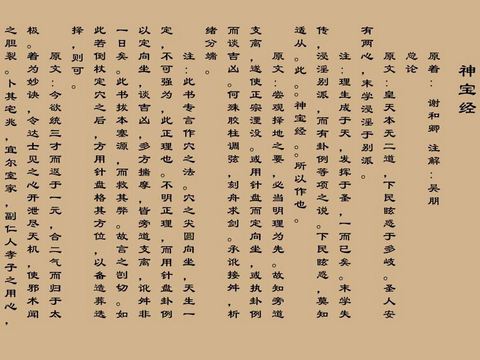 神宝经
原着：谢和卿 注解：吴朋
总论
原文：皇天本无二道，下民眩惑于多岐。圣人安
有两心，末学浸淫于别派。
注：理生成于天，发挥于圣，一而已矣。末学失
传，浸淫别派，而有卦例等项之说。下民眩惑，莫知
适从。此。。神宝经。。所以作也。
原文：尝观择地之要，必当明理为先。故知旁道
支离，遂使正宗湮没。或用针盘而定向坐，或执卦例
而谈吉凶。何殊胶柱调弦，刻舟求剑。承讹接舛，析
绪分端。
注：此书专言作穴之法。穴之尖圆向坐，天生一
定，不可强为，此正理也。不明正理，而用针盘卦例
以定向坐，谈吉凶，多方揣摩，皆旁道支离，讹舛非
一日矣。此书拔本塞源，而救其弊。故言之剀切。如
此若倒杖定穴之后，方用针盘格其方位，以备造葬选
择，则可。
原文：今欲统三才而返于一元，合二气而归于太
极。着为妙诀，令达士见之心开泄尽天机，使邪术闻
之胆裂。卜其宅兆，宜尔室家，副仁人孝子之用心，